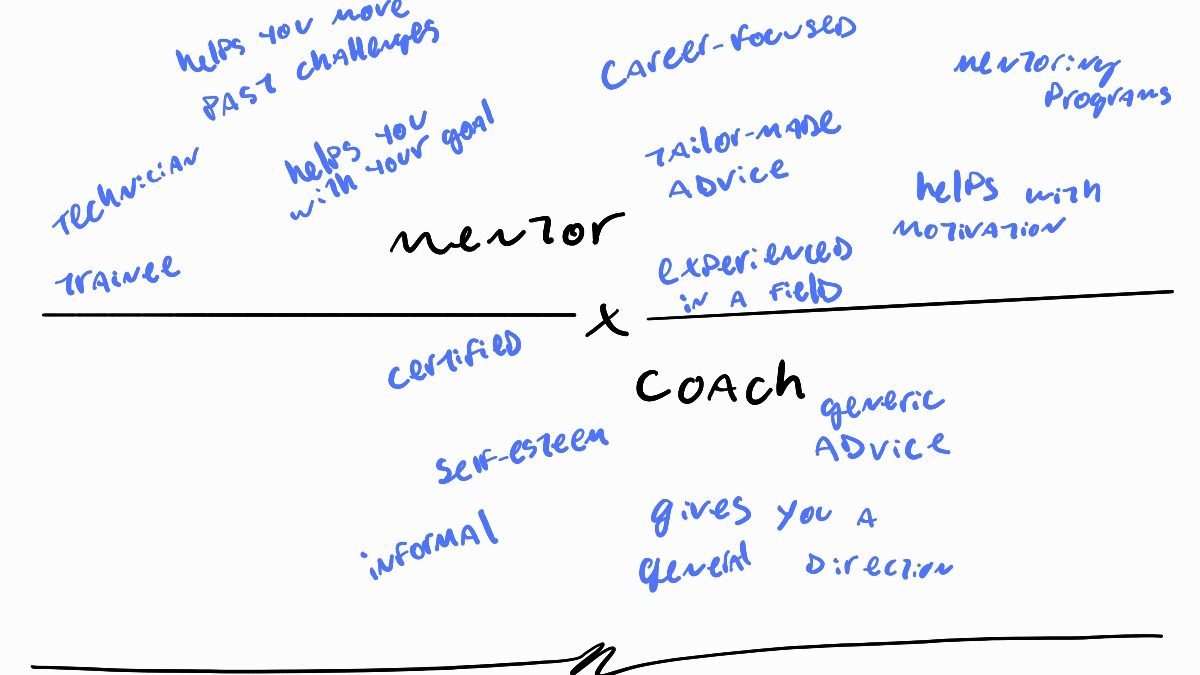 helps you move
past challenges
helps you
with your goal
technician
trainee
career-focused
tailor-made
advice
mentoring
programs
helps with
motivation
mentor
experienced
in a field
x
coach
certified
self-esteem
informal
generic
advice
gives you a
general direction